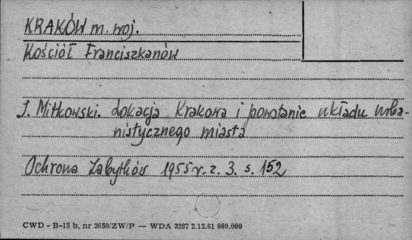 KRAKÓW m. woj.
Kościół Franciszkanów
J. Mitkowski. Lokacja Krakowa i powstanie układu urba-
nistycznego miasta
Ochrona Zabytków 1955 r. z. 3. s. 152
CWD - B-15 b, nr 2659/ZW/P — WDA 3287 2.12.61 999.000